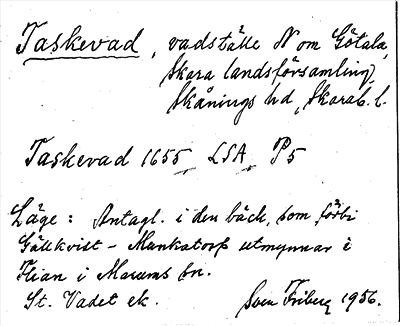 Taskevad, vadställe N om Götala,
Skara landsförsamling,
Skånings hd, Skarab. l.
Taskevad 1655 LSA P5
Läge: Antagl. i den bäck, som förbi
Gällkvist - Munkatorp utmynnar i
Flian i Marums sn.
St. Vadet ek. Sven Friberg 1956.